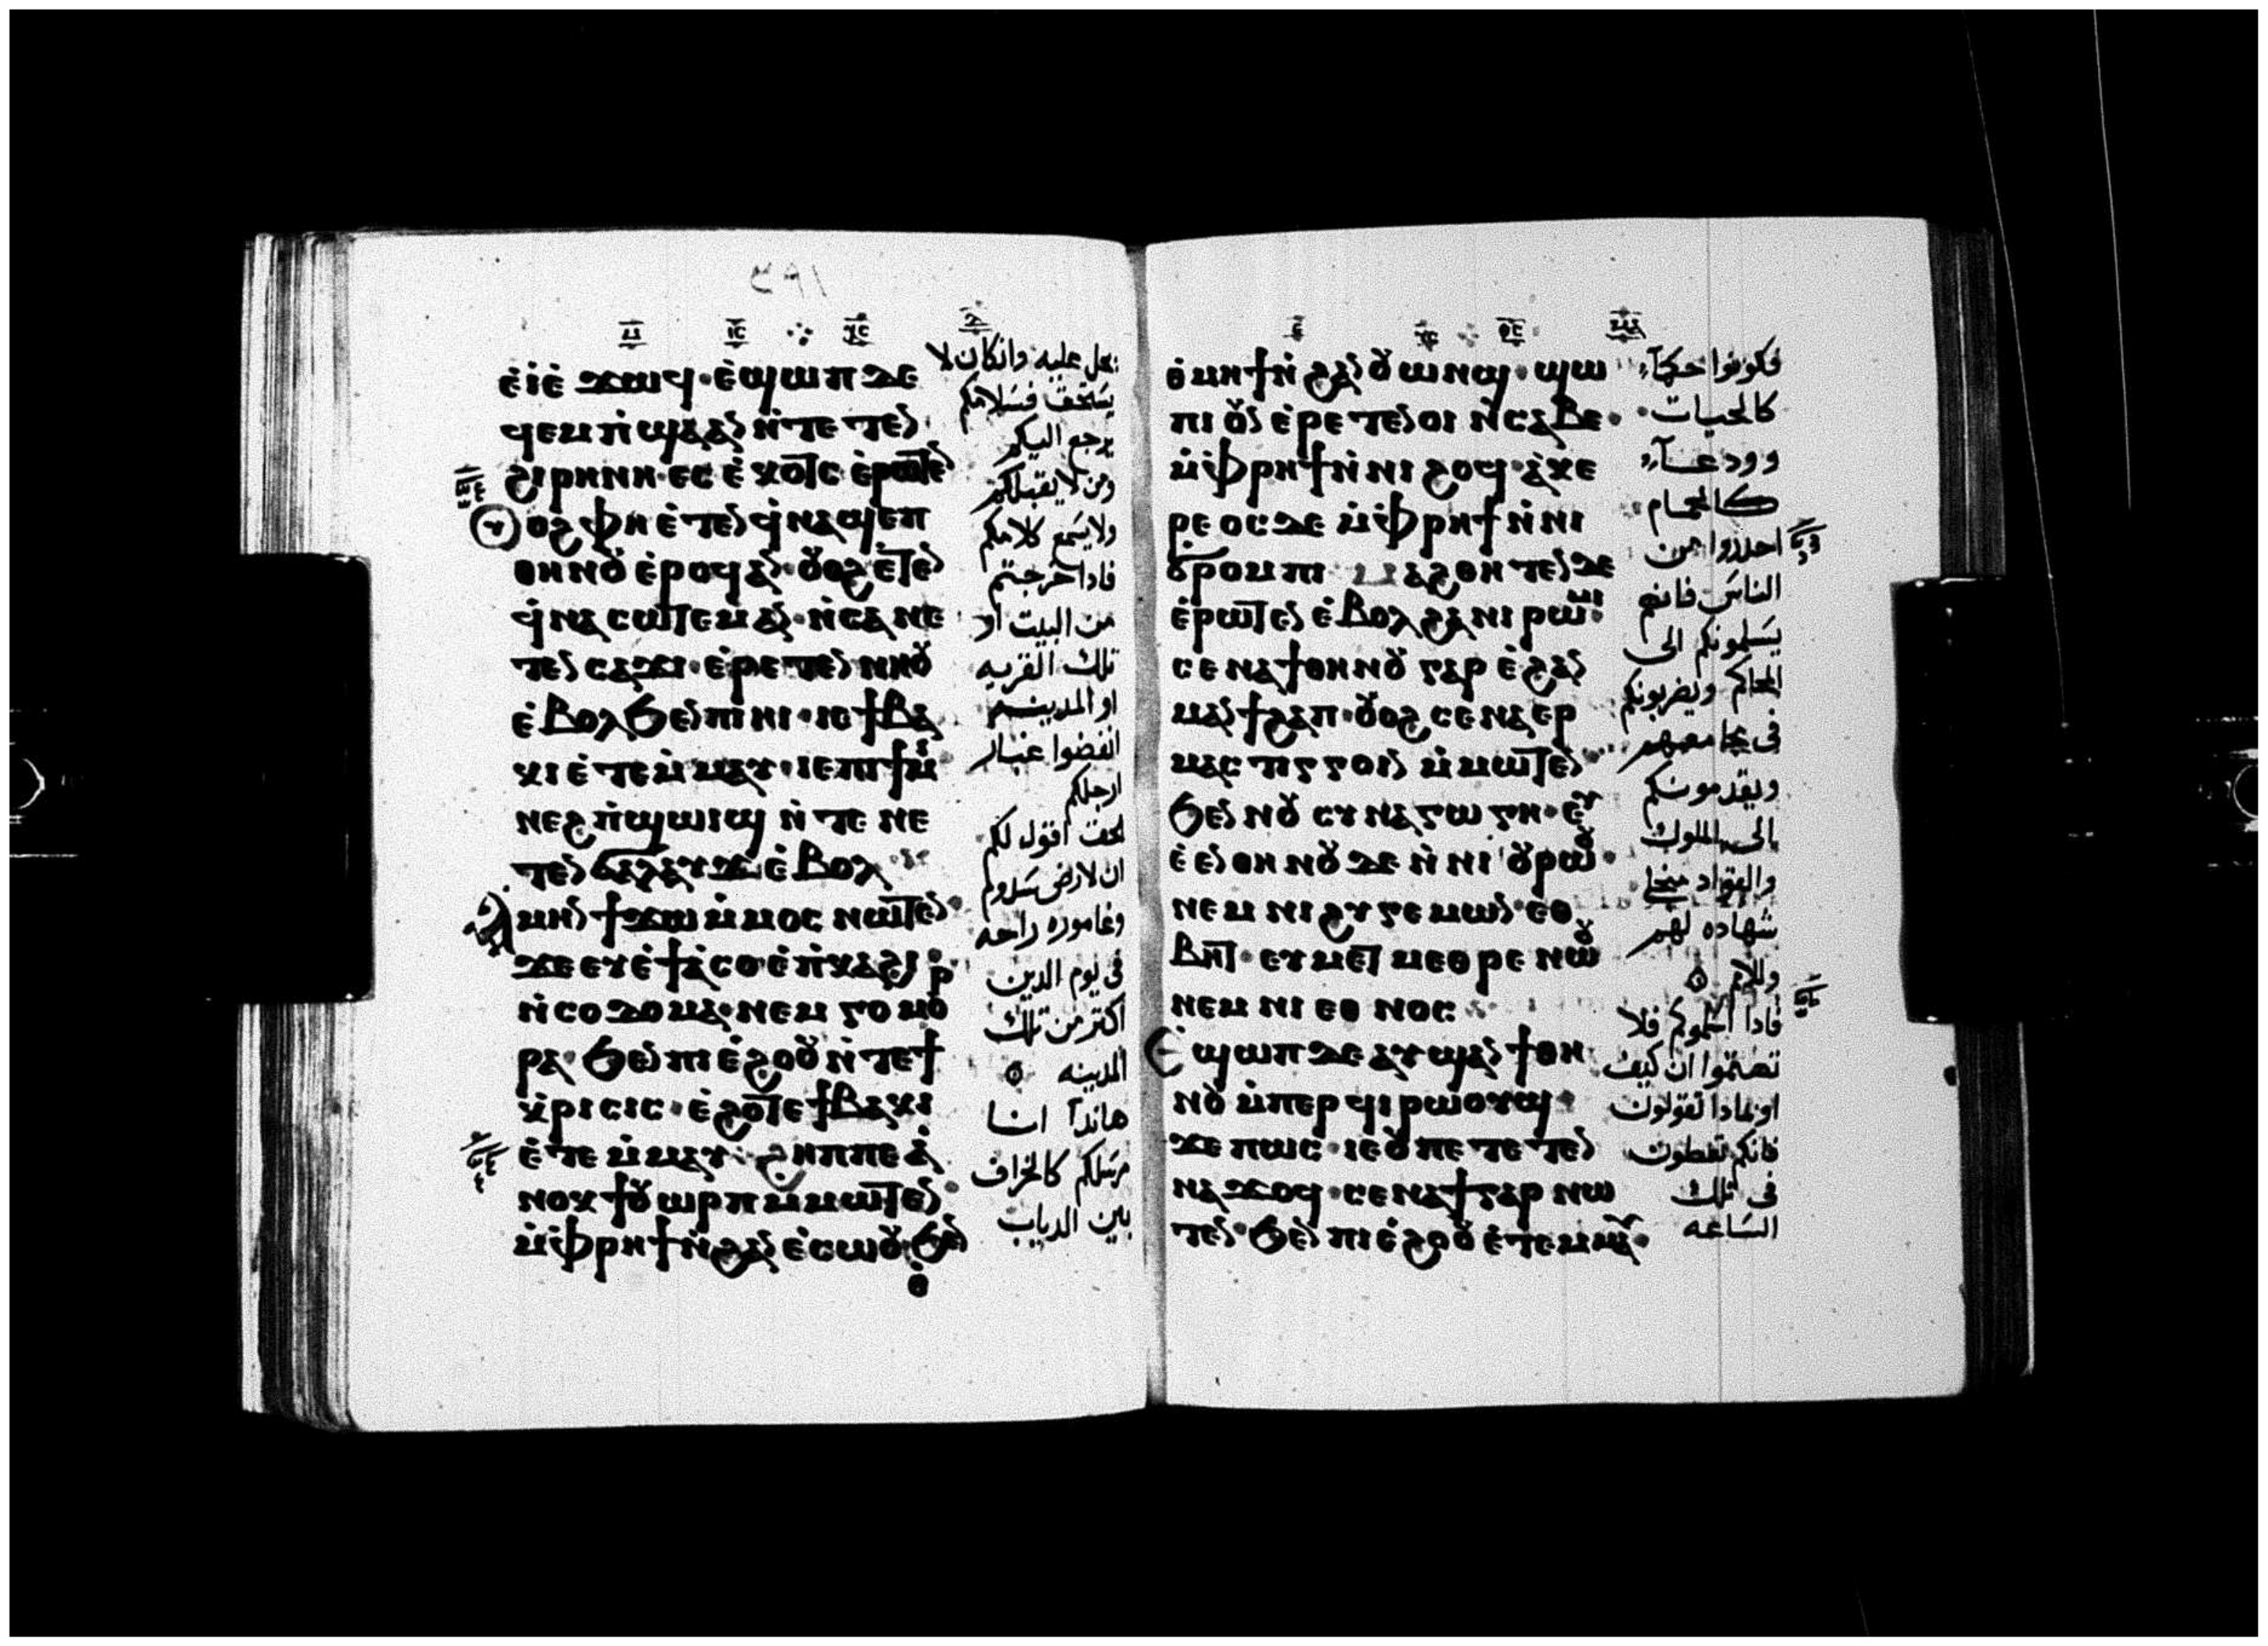 ⲉ̀ⲓⲉ̀ ϫⲱϥ· ⲉ̀ϣⲱⲡ ⲇⲉ
ϥⲉⲙⲡ̀ϣⲁⲁⲛ ⲛ̀ⲧⲉ ⲧⲉⲛ
ϩⲓⲣⲏⲛⲏ· ⲉⲥⲉ̀ⲕⲟⲧⲥ ⲉ̀ⲣⲱⲧⲉⲛ
ⲟⲩⲟϩ ⲫⲏ ⲉ̀ⲧⲉⲛϥ̀ⲛⲁϣⲉⲡ
ⲑⲏⲛⲟⲩ ⲉ̀ⲣⲟϥ ⲁⲛ· ⲟⲩⲟϩ ⲉ̀ⲧⲉⲛ
ϥ̀ⲛⲁⲥⲱⲧⲉⲙ ⲁⲛ· ⲛ̀ⲥⲁ ⲛⲉ
ⲧⲉⲛⲥⲁϫⲓ· ⲉ̀ⲣⲉⲧⲉⲛⲛⲏⲟⲩ
ⲉ̀ⲃⲟⲗ ϧⲉⲛ ⲡⲓⲏⲓ· ⲓⲉ ϯⲃⲁ
ⲕⲓ ⲉ̀ⲧⲉⲙ̀ⲙⲁⲩ· ⲓⲉ ⲡⲓϯⲙⲓ
ⲛⲉϩ ⲡ̀ϣⲱⲓϣ ⲛ̀ⲧⲉ ⲛⲉ
ⲧⲉⲛϭⲁⲗⲁⲩϫ ⲉ̀ⲃⲟⲗ
ⲁ̀ⲙⲏⲛ ϯϫⲱ ⲙ̀ⲙⲟⲥ ⲛⲱⲧⲉⲛ
ϫⲉ ⲉⲩⲉ̀ϯⲁ̀ⲥⲟ ⲉ̀ⲡ̀ⲕⲁϩⲓ
ⲛ̀ⲥⲟⲇⲟⲙⲁ· ⲛⲉⲙ ⲅⲟⲙⲟ
ⲣⲁ· ϧⲉⲛ ⲡⲓⲉ̀ϩⲟⲟⲩ ⲛ̀ⲧⲉ ϯ
ⲕ̀ⲣⲓⲥⲓⲥ· ⲉ̀ϩⲟⲧⲉ ϯⲃⲁⲕⲓ
ⲉ̀ⲧⲉⲙ̀ⲙⲁⲩ· ϩⲏⲡⲡⲉ ⲁ̀
ⲛⲟⲕ ϯⲟⲩⲱⲣⲡ ⲙ̀ⲙⲱⲧⲉⲛ
ⲙ̀ⲫ̀ⲣⲏϯ ⲛ̀ϩⲁⲛⲉ̀ⲥⲱⲟⲩ ϧⲉⲛ
يحل عليه وان كان لا
يستحق فسلامكم
يرجع اليكم
ومن لا يقبلكم
ولا يسمع كلامكم
فاذا خرجتم
من البيت او
تلك القريه
او المدينه
انفضوا غبار
ارجلكم
الحق اقول لكم
ان لارض سدوم
وغاموره راحه
فى يوم الدين
اكتر من تلك
المدينه
هاندا انا
مرسلكم كالخراف
بين الدياب
ⲑⲙⲏϯ ⲛ̀ϩⲁⲛⲟⲩⲱⲛϣ· ϣⲱ
ⲡⲓ ⲟⲩⲛ ⲉ̀ⲣⲉⲧⲉⲛⲟⲓ ⲛ̀ⲥⲁⲃⲉ·
ⲙ̀ⲫ̀ⲣⲏϯ ⲛ̀ⲛⲓϩⲟϥ· ⲁ̀ⲕⲉ
ⲣⲉⲟⲥ ⲇⲉ ⲙ̀ⲫ̀ⲣⲏϯ ⲛ̀ⲛⲓ
ϭⲣⲟⲙⲡⲓ ⲙⲁϩⲑⲏⲧⲉⲛ ⲇⲉ
ⲉ̀ⲣⲱⲧⲉⲛ ⲉ̀ⲃⲟⲗ ϩⲁ ⲛⲓⲣⲱⲙⲓ
ⲥⲉⲛⲁϯ ⲑⲏⲛⲟⲩ ⲅⲁⲣ ⲉ̀ϩⲁⲛ
ⲙⲁⲛϯϩⲁⲡ· ⲟⲩⲟϩ ⲥⲉⲛⲁⲉⲣ
ⲙⲁⲥⲧⲓⲅⲅⲟⲓⲛ ⲙ̀ⲙⲱⲧⲉⲛ
ϧⲉⲛ ⲛⲟⲩⲥⲩⲛⲁⲅⲱⲅⲏ· ⲉⲩ
ⲉ̀ⲉⲛ ⲑⲏⲛⲟⲩ ⲇⲉ ⲛ̀ⲛⲓⲟⲩⲣⲱⲟⲩ·
ⲛⲉⲙ ⲛⲓϩⲩⲅⲉⲙⲱⲛ· ⲉⲑ
ⲃⲏⲧ· ⲉⲩⲙⲉⲧⲙⲉⲑⲣⲉ ⲛⲱⲟⲩ
ⲛⲉⲙ ⲛⲓⲉⲑⲛⲟⲥ
Ⲉ̀ϣⲱⲡ ⲇⲉ ⲁⲩϣⲁⲛϯ ⲑⲏ
ⲛⲟⲩ ⲙ̀ⲡⲉⲣϥⲓⲣⲱⲟⲩϣ
ϫⲉ ⲡⲱⲥ· ⲓⲉ ⲟⲩ ⲡⲉⲧⲉⲧⲉⲛ
ⲛⲁϫⲟϥ· ⲥⲉⲛⲁϯ ⲅⲁⲣ ⲛⲱ
ⲧⲉⲛ· ϧⲉⲛ ⲡⲓⲉ̀ϩⲟⲟⲩ ⲉ̀ⲧⲉⲙⲙⲁⲩ·
فكونوا حكمآء
كالحيات
وودعآء
كالحمام
احذروا من
الناس فانهم
يسلمونكم الى
المحاكم ويضربونكم
فى مجامعهم
ويقدمونكم
الى الملوك
والقواد من اجلى
شهاده لهم
وللامم
فاذا اسلموكم فلا
تهتموا ان كيف
او بماذا تقولون
فانكم تعطون
فى تلك
الساعه